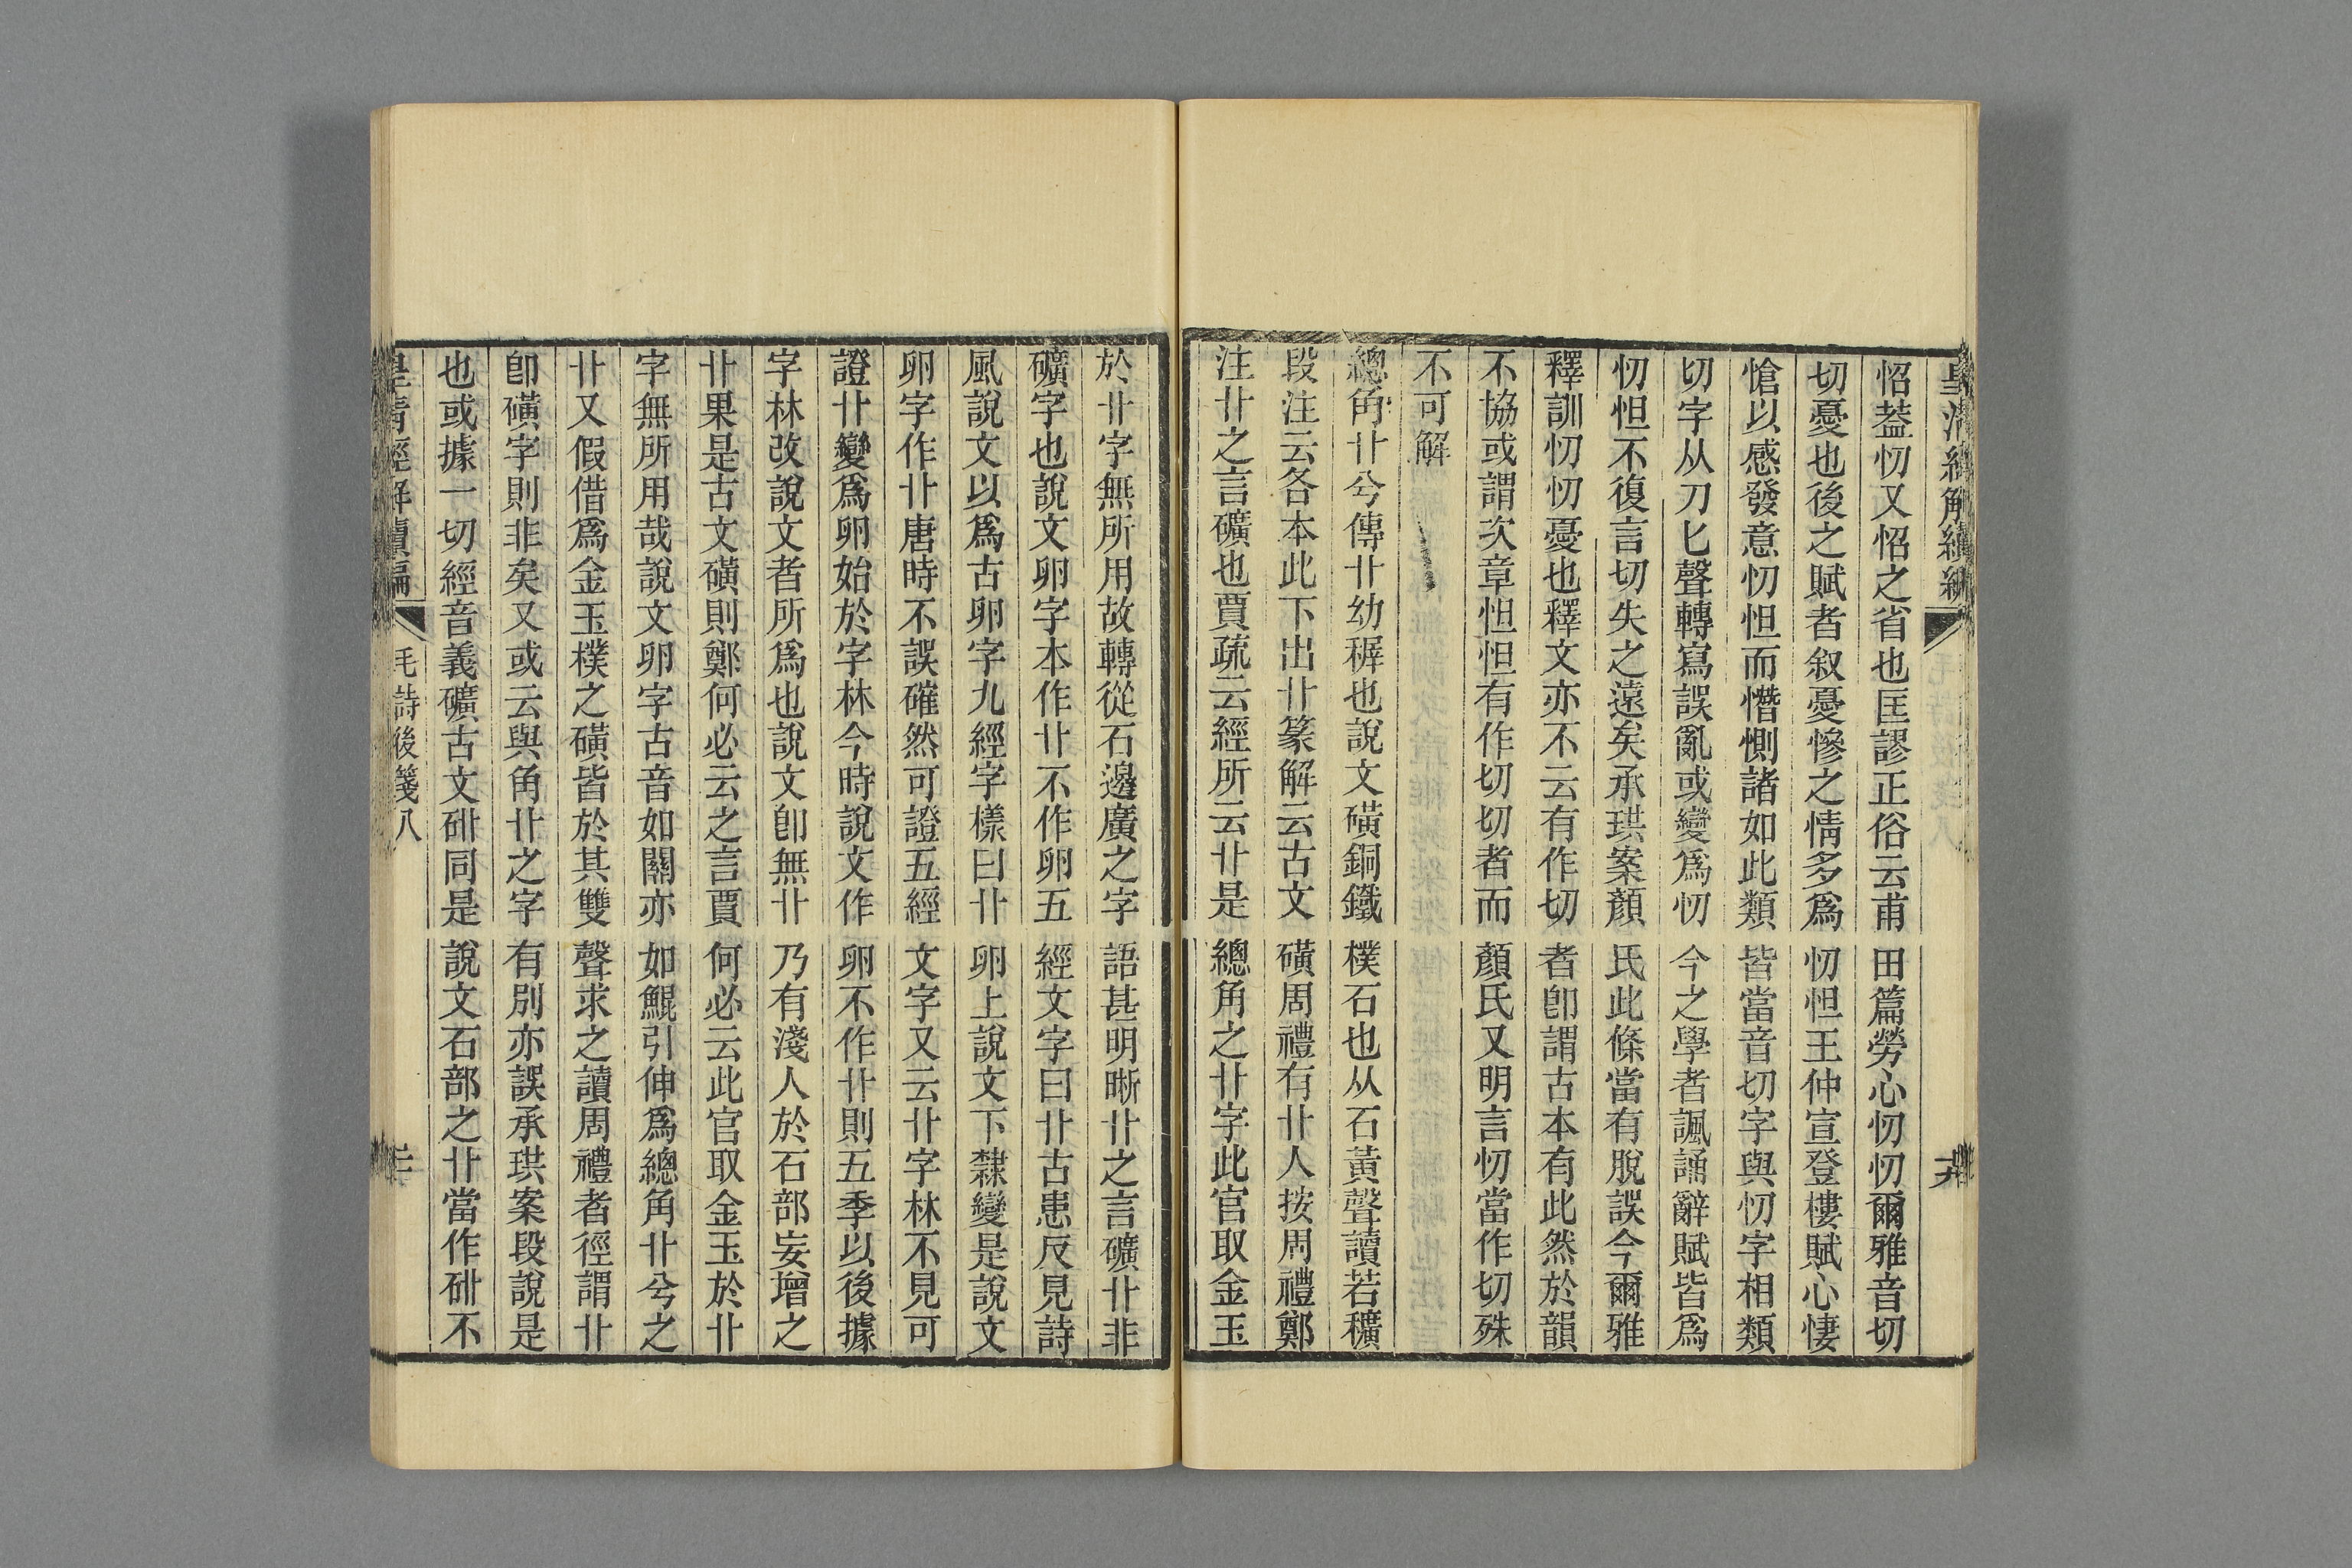 怊葢忉又怊之省也匡謬正俗云甫田篇勞心忉忉爾雅音切
切憂也後之賦者叙憂慘之情多爲忉怛王仲宣登樓賦心悽
愴以感發意忉怛而憯惻諸如此類皆當音切字與忉字相類
切字从刀匕聲轉寫誤亂或變爲忉今之學者諷誦辭賦皆爲
忉怛不復言切失之遠矣承珙案顏氏此條當有脫誤今爾雅
釋訓忉忉憂也釋文亦不云有作切者卽謂古本有此然於韻
不協或謂次章怛怛有作切切者而顏氏又明言忉當作切殊
不可解
總角丱兮傳丱幼穉也說文磺銅鐵樸石也从石黃聲讀若穬
段注云各本此下出丱篆解云古文磺周禮有丱人按周禮鄭
注丱之言礦也賈疏云經所云丱是總角之丱字此官取金玉
於丱字無所用故轉從石邊廣之字語甚明晰丱之言礦丱非
礦字也說文卵字本作丱不作卵五經文字曰丱古患反見詩
風說文以爲古卵字九經字樣曰丱卵上說文下隸變是說文
卵字作丱唐時不誤確然可證五經文字又云丱字林不見可
證丱變爲卵始於字林今時說文作卵不作丱則五季以後據
字林改說文者所爲也說文卽無丱乃有淺人於石部妄增之
丱果是古文磺則鄭何必云之言賈何必云此官取金玉於丱
字無所用哉說文卵字古音如關亦如鯤引伸爲總角丱兮之
丱又假借爲金玉樸之磺皆於其雙聲求之讀周禮者徑謂丱
卽磺字則非矣又或云與角丱之字有別亦誤承珙案段說是
也或據一切經音義礦古文砒同是說文石部之丱當作砒不
皇清經解續編
毛詩後箋八